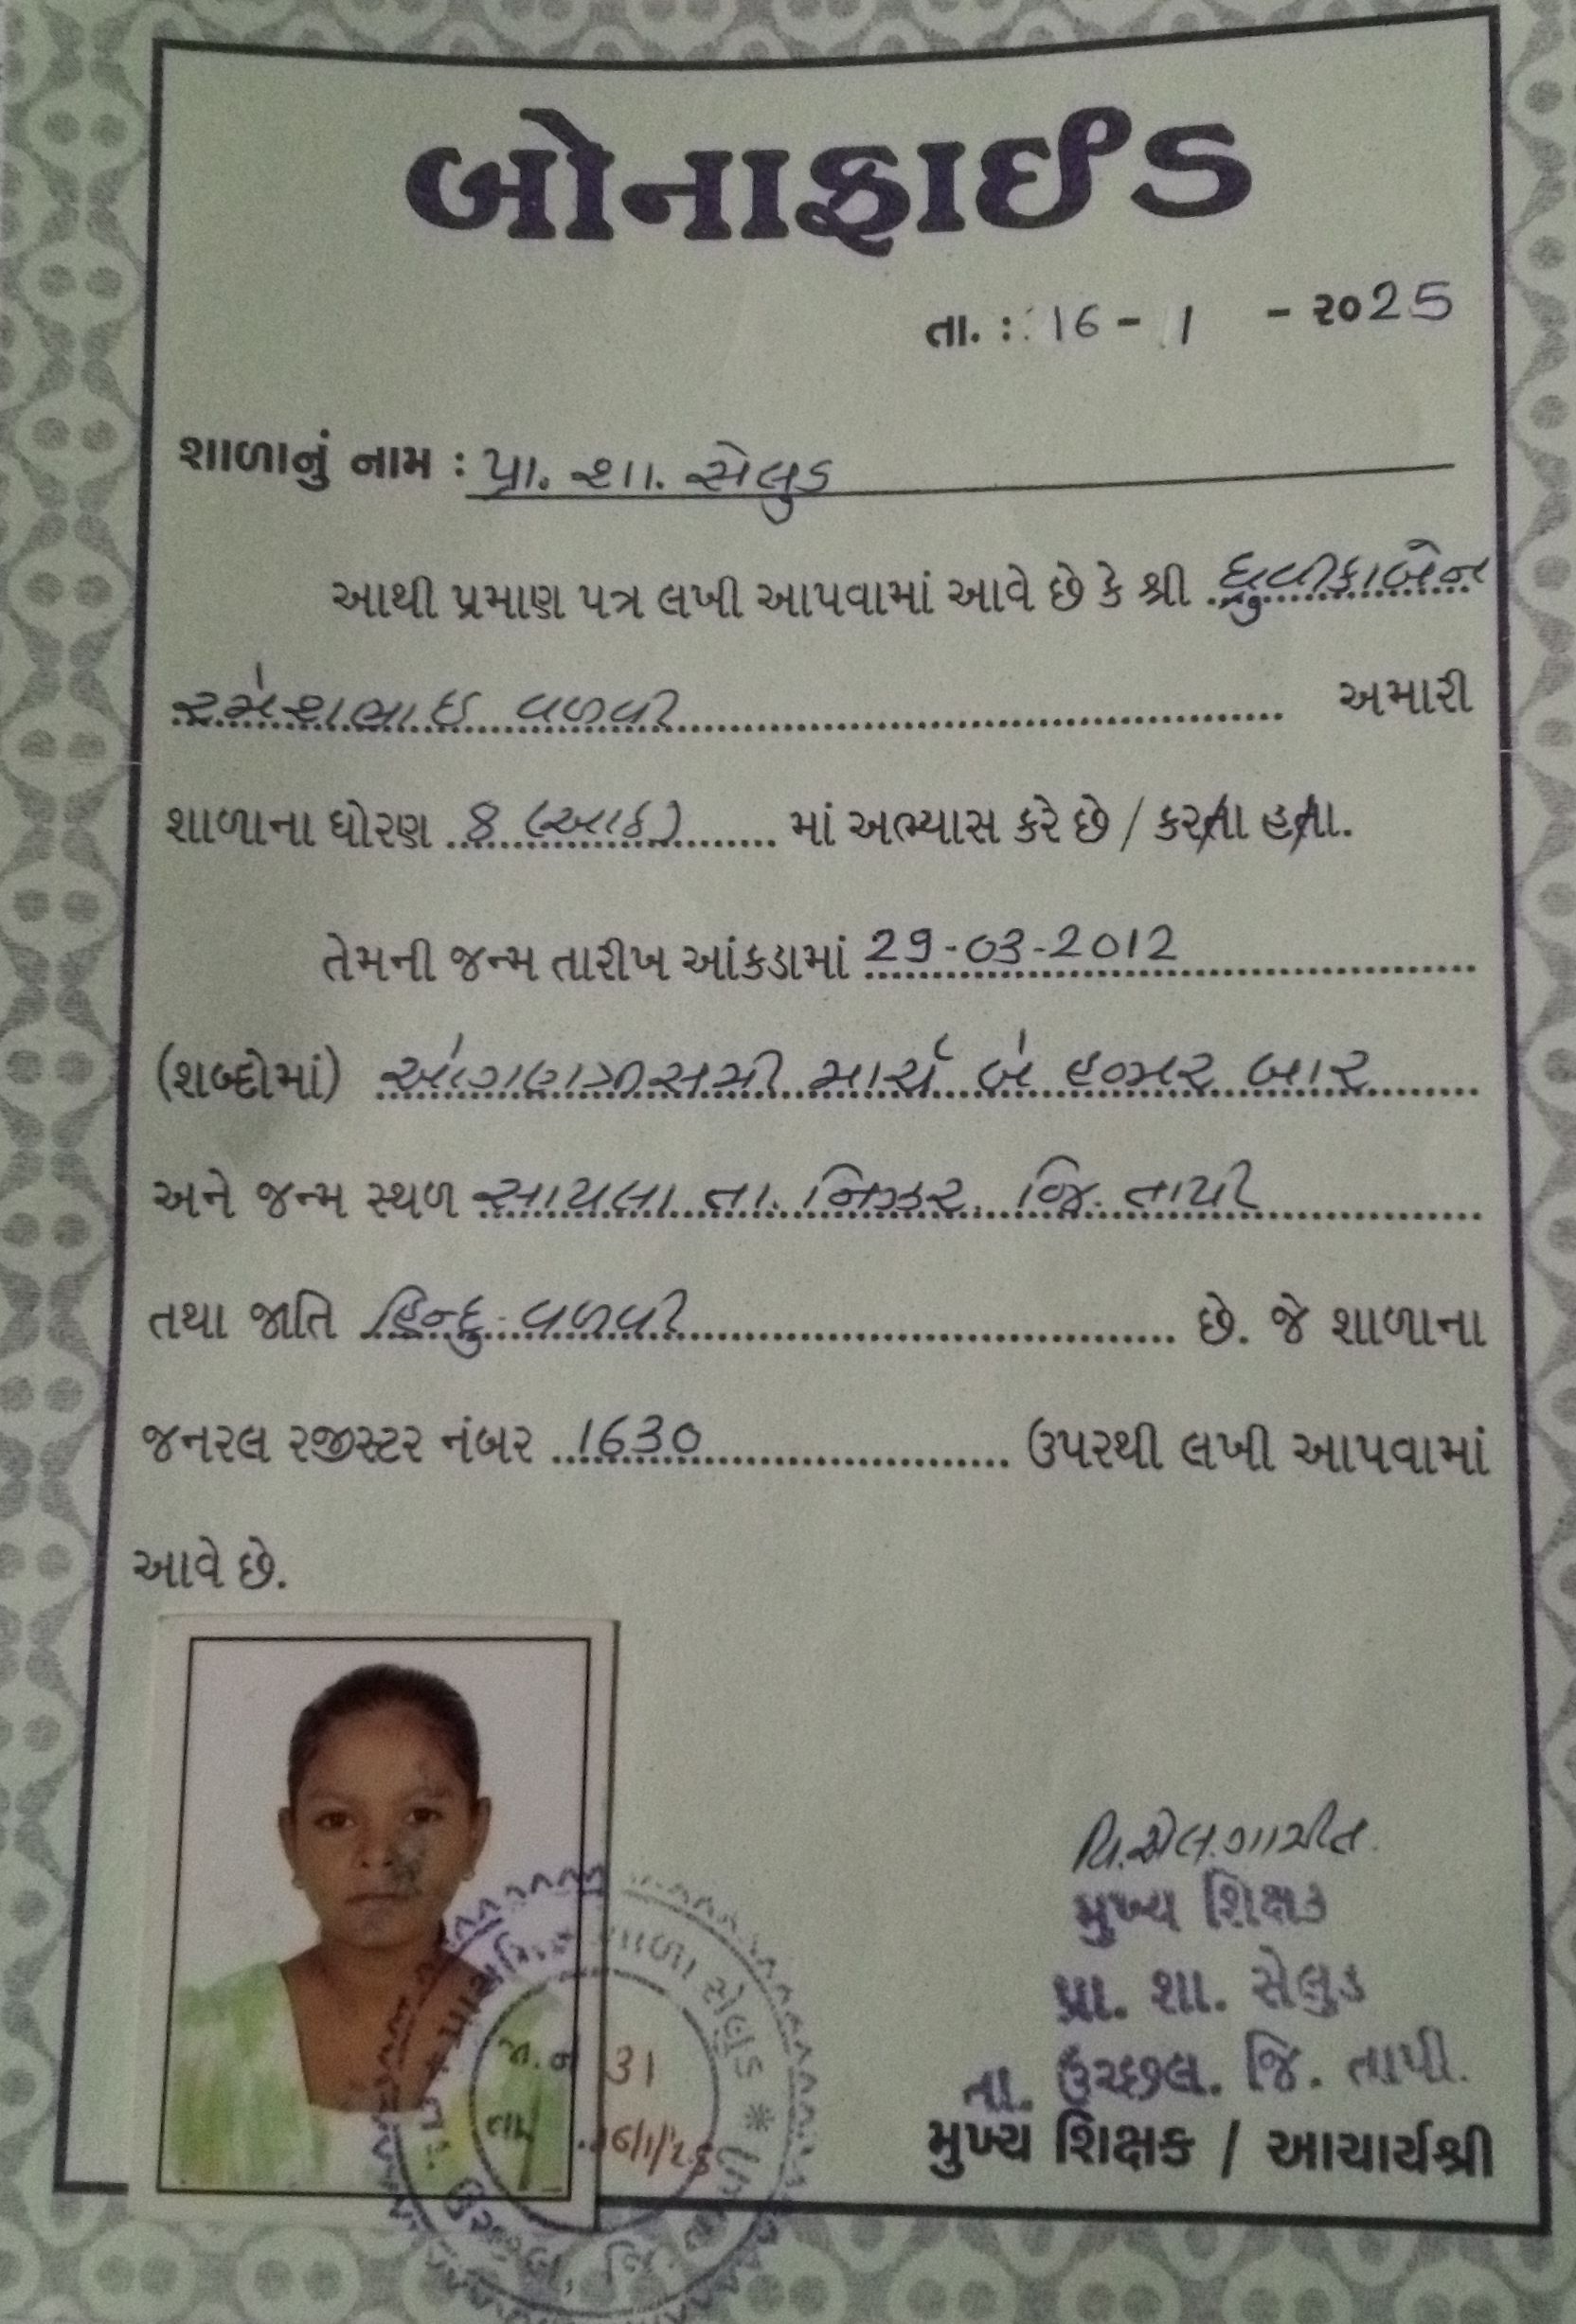 બોનાફાઈડ
તા. : 16 - 1 - ૨૦25
શાળાનું નામ : પ્રા. શા. સેલુડ
આથી પ્રમાણ પત્ર લખી આપવામાં આવે છે કે શ્રી ધ્રુવીકાબેન
રમેશભાઇ વળવી અમારી
શાળાના ધોરણ 8 (આઠ) માં અભ્યાસ કરે છે / કરતા હતા.
તેમની જન્મ તારીખ આંકડામાં 29-03-2012
(શબ્દોમાં) ઓગણત્રીસમી માર્ચ બે હજાર બાર
અને જન્મ સ્થળ સાયલા તા. નિઝર જિ. તાપી
તથા જાતિ હિન્દુ-વળવી છે. જે શાળાના
જનરલ રજીસ્ટર નંબર 1630 ઉપરથી લખી આપવામાં
આવે છે.
વિ.એલ.ગામીત
મુખ્ય શિક્ષક
પ્રા. શા. સેલુડ
તા. ઉચ્છલ. જિ. તાપી.
મુખ્ય શિક્ષક / આચાર્યશ્રી
શાળા સેલુડ *
જા.ન 31
તા 16/1/25